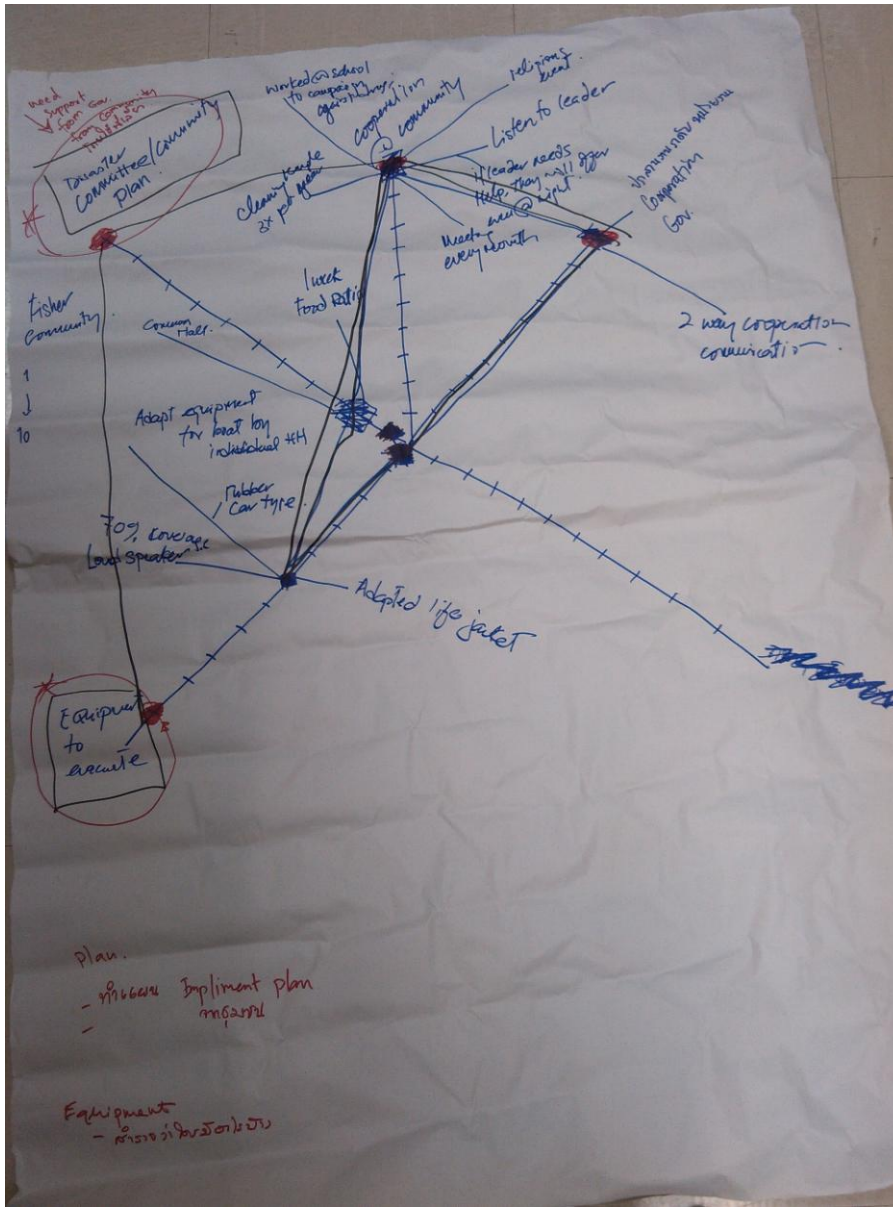 need
support
from Gov.
from community
Disaster
Committee/Community
Plan.
worked@school
to campaign
against
cooperation
@ community
religious
event.
Listen to leader
if leader needs
Help, they will offer
even @ night.
Meeting
every month
Cleaning
2x per year
Cooperation
Gov.
2 way cooperation
comunicatio
Fisher
Community.
1
↓
10
Common Hall.
1 week
Food Ratio
Adapt equipment
for boat by
individual HH
rubber
Car type.
70% coverage
Loud Speaker
Adapted life jacket
Equipment
to
evacuate
plan.
- ทำแผน Impliment plan
จากชุมชน
-
Equipment
- สำรวจว่าใครมีอะไรบ้าง